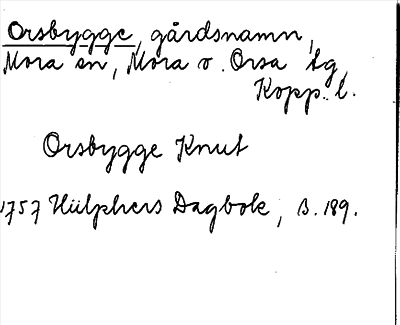 Orsbygge, gårdsnamn,
Mora sn, Mora o. Orsa tg,
Kopp. l.
Orsbygge Knut
1757 Hülphers Dagbok, s. 189.